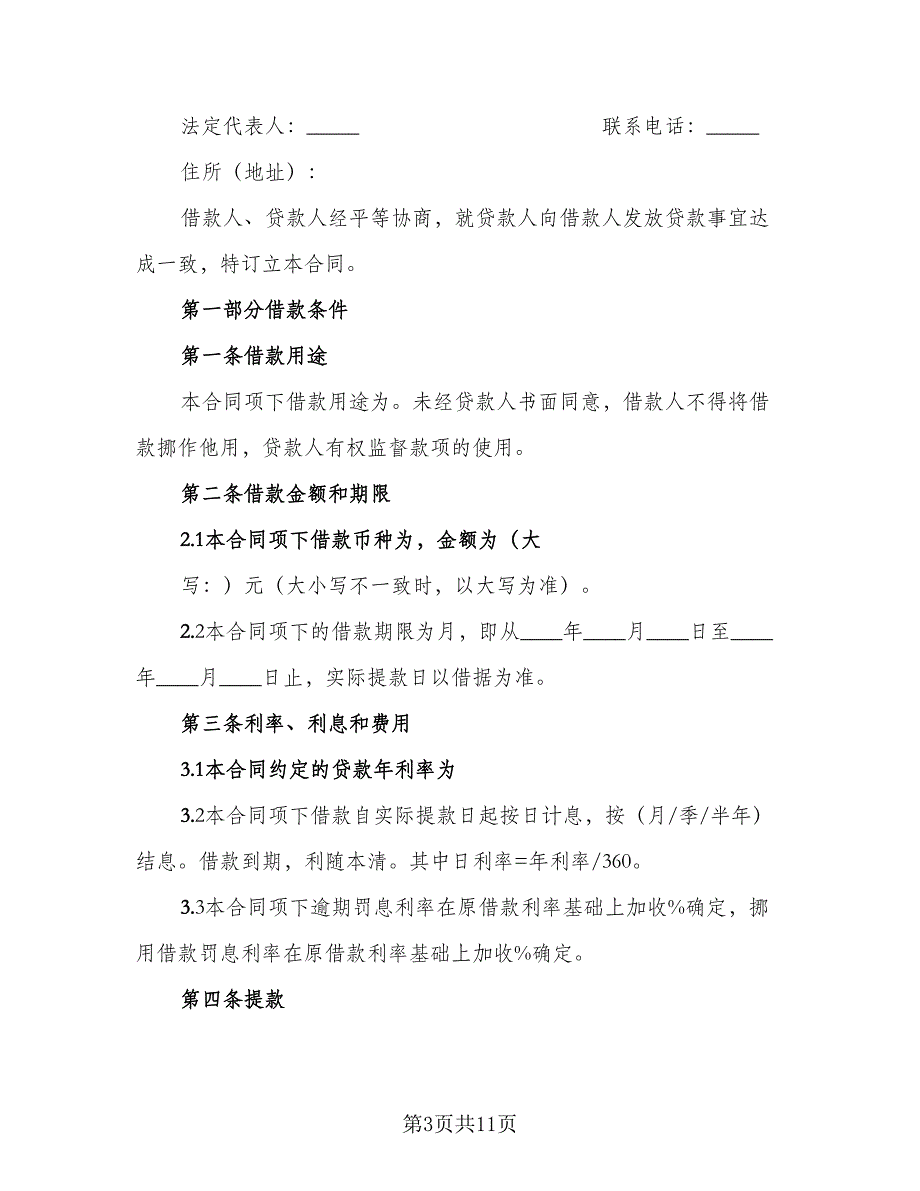 法定代表人：_____ 联系电话：_____
住所（地址）：
借款人、贷款人经平等协商，就贷款人向借款人发放贷款事宜达
成一致，特订立本合同。
第一部分借款条件
第一条借款用途
本合同项下借款用途为。未经贷款人书面同意，借款人不得将借
款挪作他用，贷款人有权监督款项的使用。
第二条借款金额和期限
2.1本合同项下借款币种为，金额为（大
写：）元（大小写不一致时，以大写为准）。
2.2本合同项下的借款期限为月，即从____年____月____日至____
年____月____日止，实际提款日以借据为准。
第三条利率、利息和费用
3.1本合同约定的贷款年利率为
3.2本合同项下借款自实际提款日起按日计息，按（月/季/半年）
结息。借款到期，利随本清。其中日利率=年利率/360。
3.3本合同项下逾期罚息利率在原借款利率基础上加收%确定，挪
用借款罚息利率在原借款利率基础上加收%确定。
第四条提款
第3页共11页